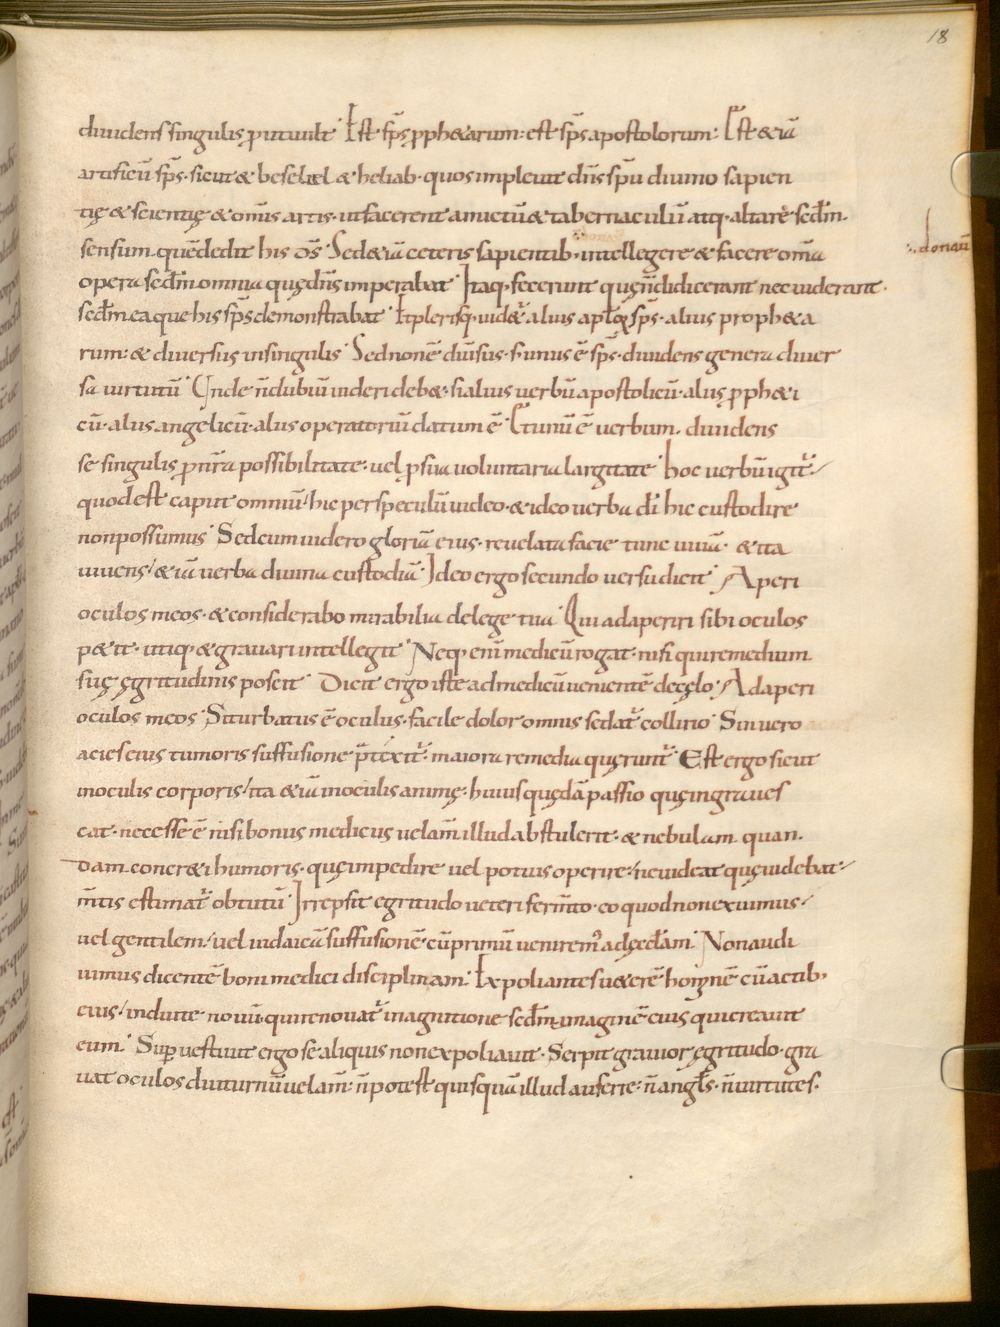 18
diuidens singulis prout uult. Est sps̄ pphetarum: est sps̄ apostolorum: Est & iā
artificū sps̄. sicut & beseliel & heliab. quos impleuit dn̄s spū diuino sapien
tię & scientię & om̄is artis. ut facerent amictū & tabernaculū atq. altare. scdm̄.
sensum quē dedit his ds̄. Sed & iā ceteris sapientib. intellegere & facere om̄a
∴ donauit
opera scdm̄ omnia quę dn̄s imperabat. Itaq. fecerunt quę n̄ didicerant nec uiderant.
scdm̄ ea que his sps̄ demonstrabat. Et plerisq. uidet̄ alius aplōꝝ sps̄. alius proph&a
rum: & diuersus in singulis. Sed non ē diuisus. s; unus ē sps̄. diuidens genera diuer
sa uirtutū. Unde n̄ dubiū uideri deb&. si alius uerbū apostolicū. alius pph&i
cū. alius angelicū. alius operatoriū datum ē. Et unū ē uerbum. diuidens
se singulis p nr̄a possibilitate. uel p sua uoluntaria largitate. hoc uerbū igit̄
quod est caput omniū. hic per speculū uideo. & ideo uerba dī hic custodire
non possumus. Sed cum uidero gloriā eius. reuelata facie tunc uiuā. & ita
uiuens. & iā uerba diuina custodiā. Ideo ergo secundo uersu dicit. Aperi
oculos meos. & considerabo mirabilia de lege tua. Qui adaperiri sibi oculos
p&it. utiq. & grauari intellegit. Neq. enī medicū rogat. nisi qui remedium
suę ęgritudinis poscit. Dicit ergo iste ad medicū uenientē de cęlo. Adaperi
oculos meos. Si turbatus ē oculus. facile dolor omnis sedat̄ collirio. Sin uero
acies eius tumoris suffusione p̄texit̄. maiora remedia quęrunt̄. Est ergo sicut
in oculis corporis. ita & iā in oculis animę. huiusquędā passio quę ingraues
cat. necesse ē nisi bonus medicus uelam̄ illud abstulerit. & nebulam quan.
dam concr&i humoris. quę impedire uel potius operire. ne uideat quę uidebat.
m̄tis estimat̄ obtutū. Irrepsit egritudo ueteri ferm̄to. eo quod non exuimus.
uel gentilem. uel iudaicā suffusionē. cū primū uenirem᾽ ad ęcclam̄. Non audi
uimus dicentē boni medici disciplinam. Expoliantes u&erē hominē cū actib.
eius. induite nouū. qui renouat̄ in agnitione scdm̄ imaginē eius qui creauit
eum. Sup uestiuit ergo se aliquis non expoliauit. Serpit grauior ęgritudo. gra
uat oculos diuturnū uelam̄. n̄ potest quisquā illud auferre. n̄ angls̄. n̄ uirtutes.